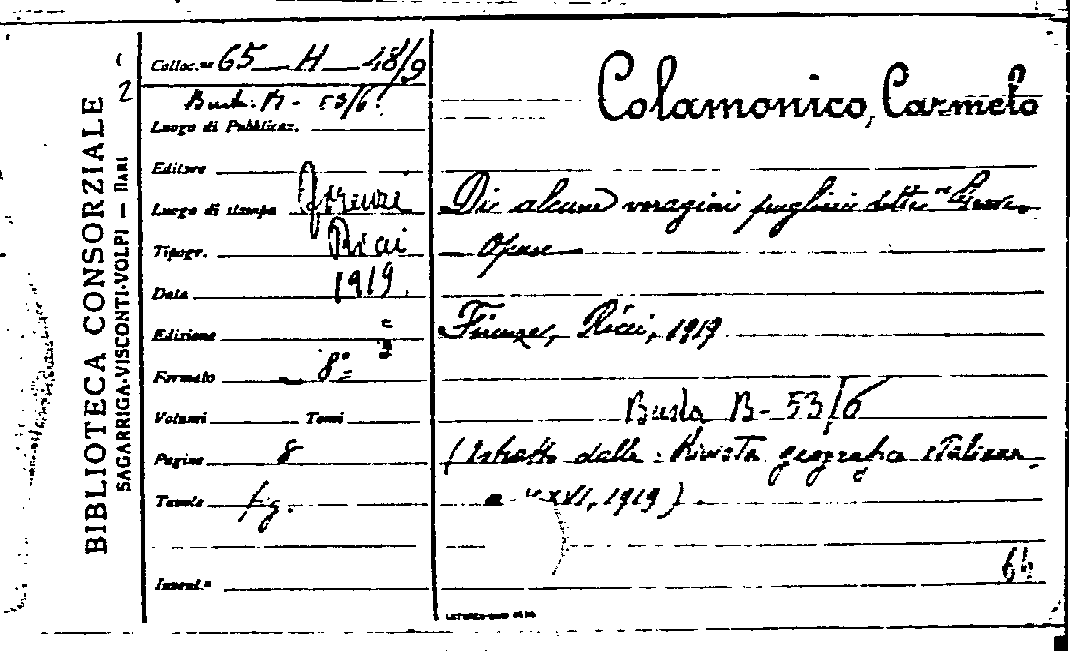 BIBLIOTECA CONSORZIALE
SAGARRIGA-VISCONTI-VOLPI — BARI
Colloc.ne 65 H 48/9
Bust. B - 53/6
Luogo di Pubblicaz.
Editore
Luogo di stampa Firenze
Tipogr. Ricci
Data 1919.
Edizione =
Formato 8°=
Volumi Tomi
Pagine 8
Tavole fig.
Invent.º
Colamonico, Carmelo
Di alcune voragini pugliesi dette "
Firenze, Ricci, 1919
Busta B-53/6
(Estratto dalla: Rivista geografica italiana,
a XXVI, 1919).
64